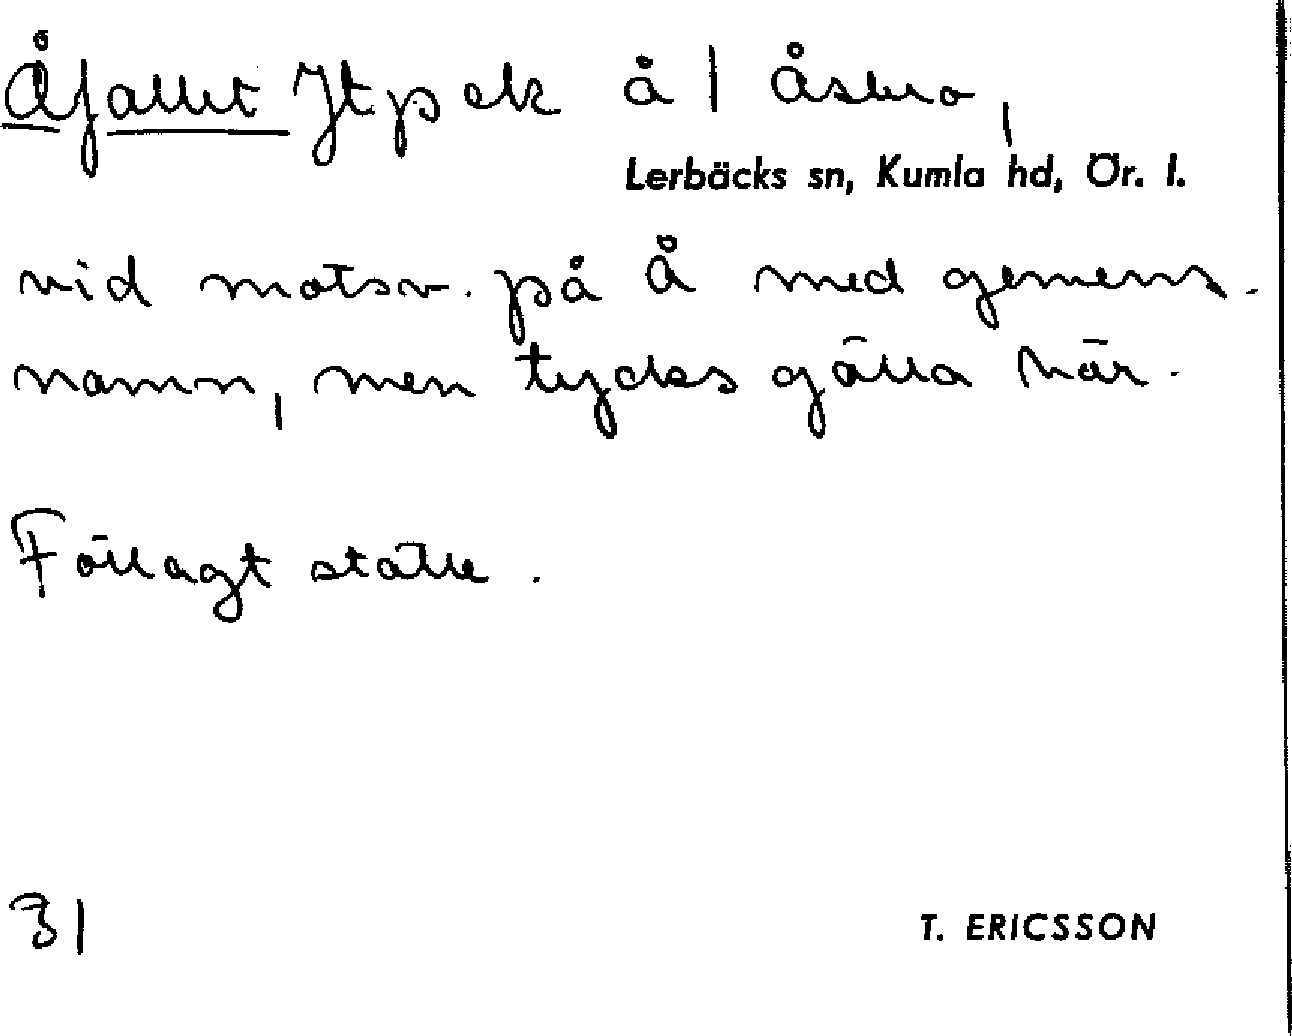 Åfallet Jtp ek å | Åsbro,
Lerbäcks sn, Kumla hd, Ör. l.
vid motsv. på Å med gemens.
namn, men tycks gälla här.
Föllagt ställe.
31
T. ERICSSON